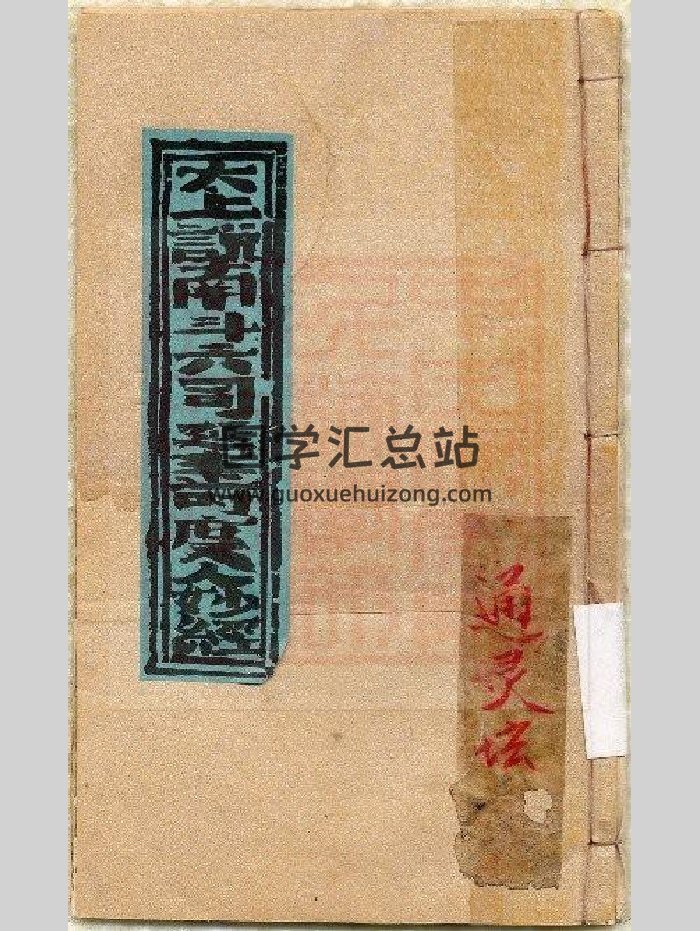 太上說南斗六司延壽度人妙經
通灵坛
国学汇总站
www.guoxuehuizong.com